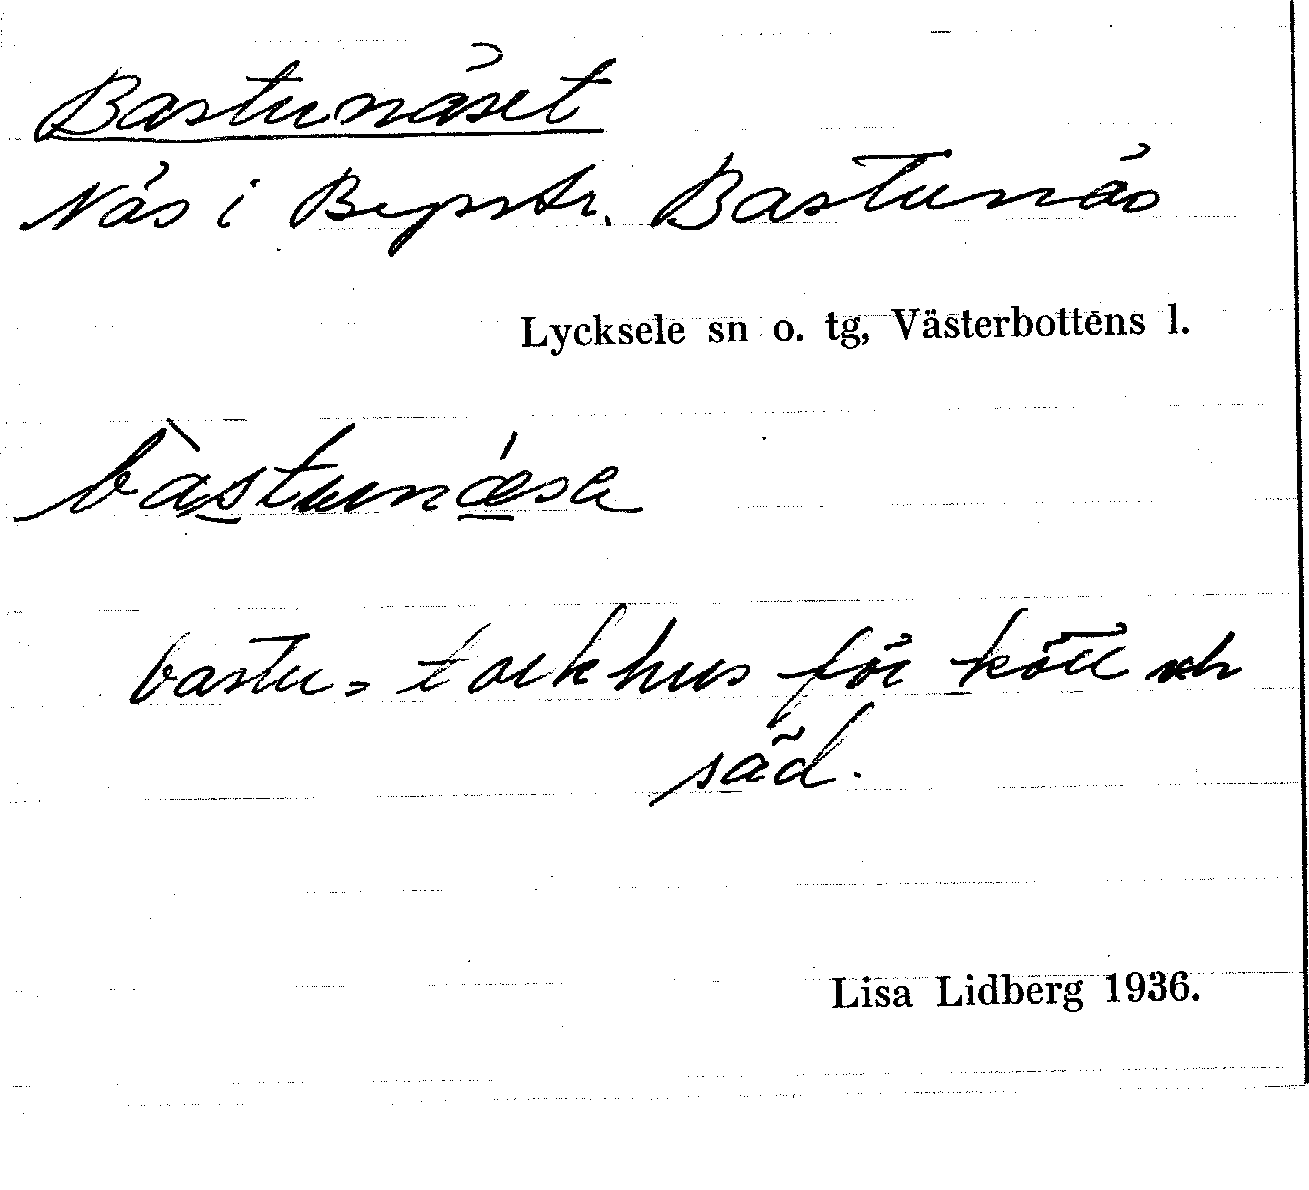 Bastunäset
Näs i Bypstr. Bastunäs
Lycksele sn o. tg, Västerbottens l.
bàstunǽsa
bastu = torkhus för kött och
säd.
Lisa Lidberg 1936.